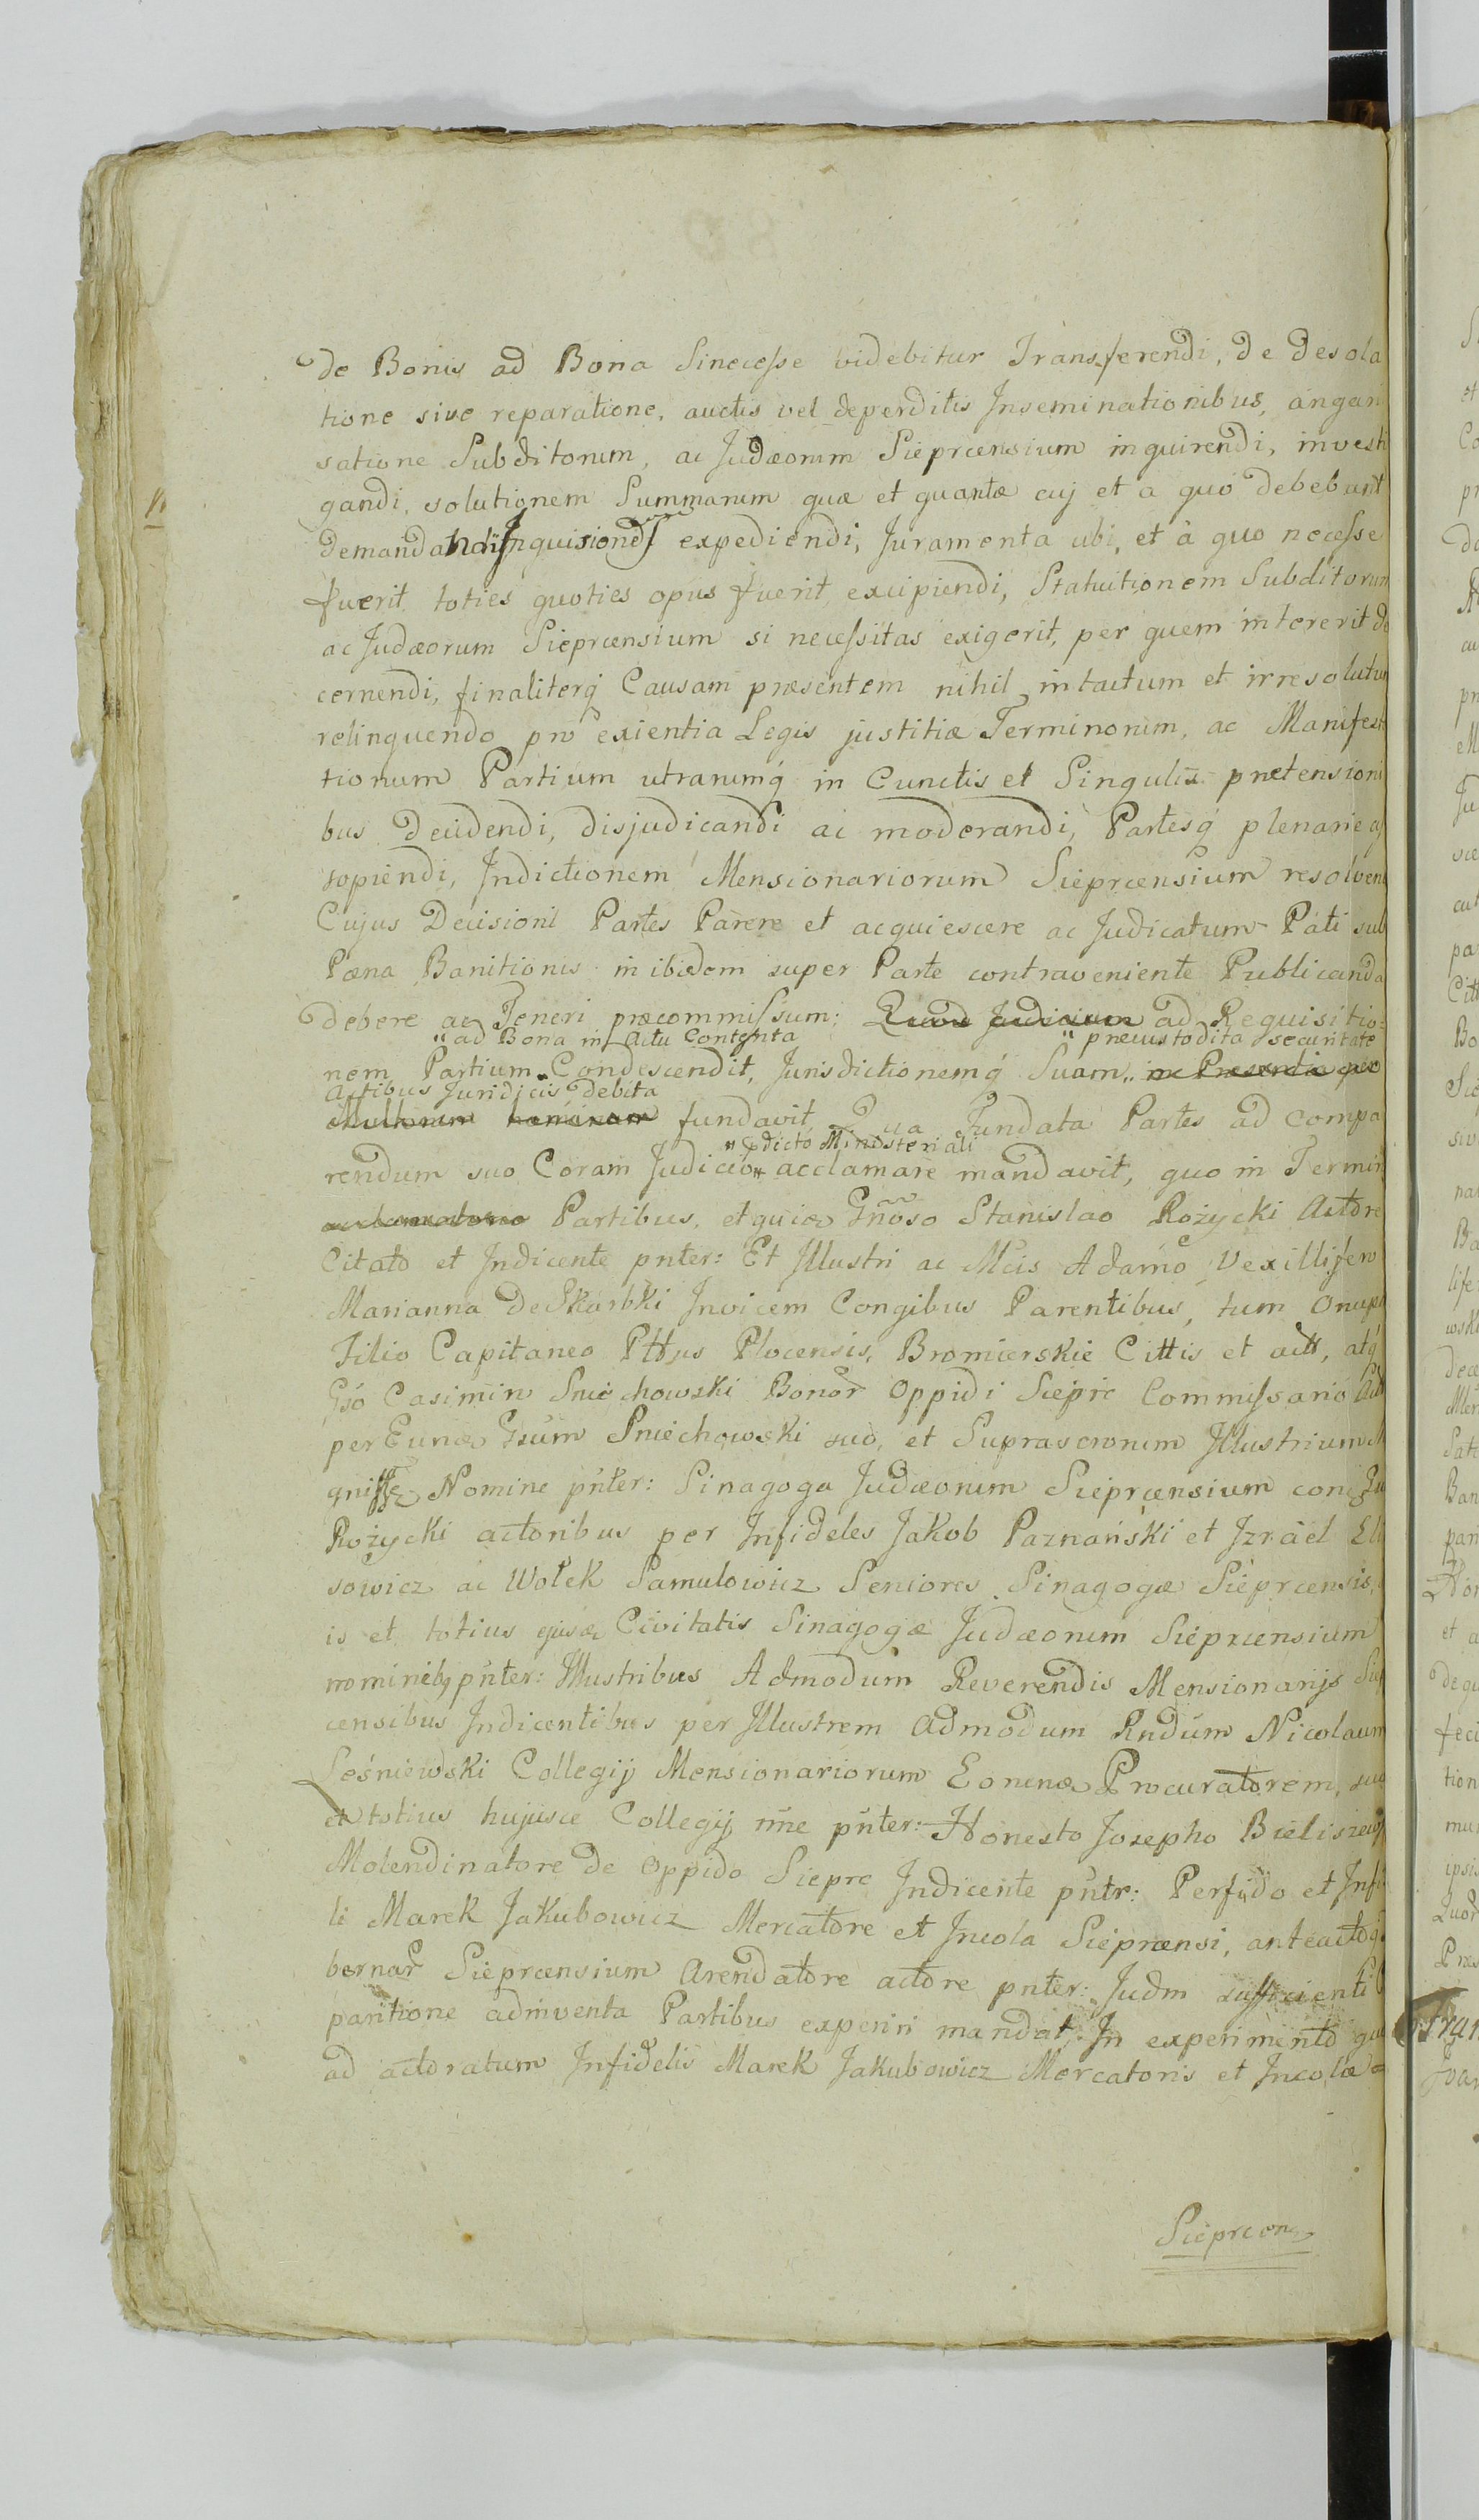 de Bonis ad Bona Sinecesse videbitur Transferendi, de desola
tione sive reparatione, auctis vel deperditis Inseminationibus, angari
satione Subditorum, ac Judæorum Sieprcensium inquirendi, investi
gandi, solutionem Summarum quæ et quantæ cuj et a quo debebunt
demandandi Inquisiones expediendi, Juramenta ubi, et à quo necesse
fuerit, toties quoties opus fuerit, excipiendi, Statuitionem Subditorum
ac Judæorum Sieprcensium si necessitas exigerit, per quem intererit de
cernendi, finaliterq́ Causam præsentem nihil intactum et irresolutum
relinquendo pro exientia Legis justitiæ Terminorum, ac Manifesta
tionum Partium utrarumq́ in Cunctis et Singulis prætensioni
bus Decidendi, disjudicandi ac moderandi, Partesq́ plenarie
sopiendi, Indictionem Mensionariorum Sieprcensium resolven
Cujus Decisioni Partes Parere et acquiescere ac Judicatum Pati sub
Pæna Banitionis inibidem super Parte contraveniente Publicanda
debere ac Teneri præcommissum; Quod Judicium ad Requisitio=
" ad Bona in Actu Contenta " præcustodita securitate
nem Partium " Condescendit, Jurisdictionemq́ Suam " in Presentia
Artibus Juridicis debita
Multorum hominum fundavit, Qua Fundata Partes ad compa
" Edicto Ministeriali
rendum suo Coram Judicio " acclamare mandavit, quo in Termin
Partibus, et quidem Gñoso Stanislao Rożycki Actore
Citato et Indicente pnter: Et Illustri ac Mcis Adamo Vexillifero
Marianna de Skarbki Invicem Congibus Parentibus, tum Onup
Filio Capitaneo Pttus Plocensis, Bromierskie Cittis et actt, atq́
Gśo Casimiro Sniechowski Bonor Oppidi Sieprc Commissario
per Eund Gsum Sniechowski suo, et Suprascrorum Illustrium
Nomine pnter: Sinagoga Judæorum Sieprcensium con
Rożycki actoribus per Infideles Jakob Paznański et Izrael El
sowicz ac Wołek Samulowicz Seniores Sinagogæ Sieprcensis,
is et totius ejusd Civitatis Sinagogæ Judæorum Sieprcensium
nominibq pnter: Illustribus Admodum Reverendis Mensionarijs Siep
censibus Indicentibus per Illustrem Admodum Rndum Nicolaum
Leśniewski Collegij Mensionariorum Eorund Procuratorem, suo
et totius hujusce Collegij nne pnter: Honesto Josepho Bielisze
Molendinatore de Oppido Sieprc Indicente pntr: Perfido et Infi
li Marek Jakubowicz Mercatore et Incola Sieprcensi, anteacto
bernar Sieprcensium Arendatore actore pnter: Judm sufficienti
paritione adinventa Partibus experiri mandat. In experimento
ad actoratum Infidelis Marek Jakubowicz Mercatoris et Incolæ =
Sieprcen